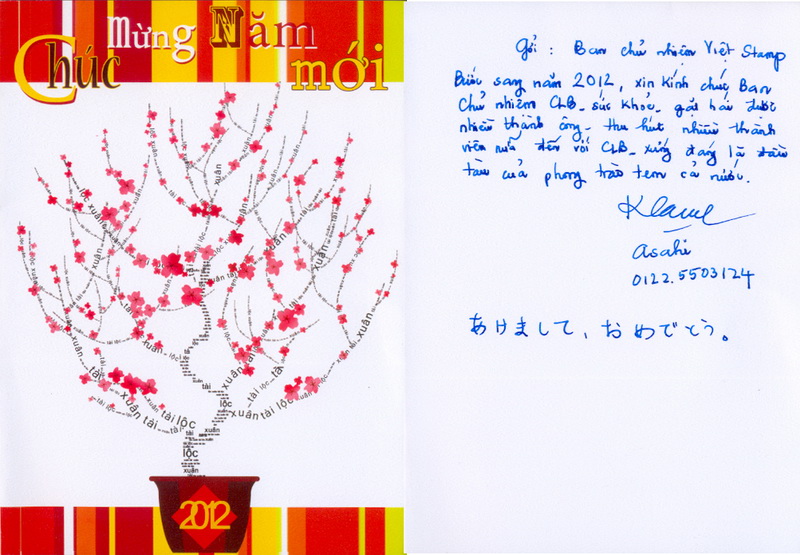 Chúc Mừng Năm mới
lộc xuân
xuân
xuân
tài
xuân
xuân tài lộc
xuân tài
lộc
xuân tài lộc
tài
lộc
xuân
2012
Gởi : Ban chủ nhiệm Việt Stamp
Bước sang năm 2012, xin kính chúc Ban
Chủ nhiệm CLB sức khỏe, gặt hái được
nhiều thành công, thu hút nhiều thành
viên nữa đến với CLB, xứng đáng là đầu
tàu của phong trào tem cả nước.
asahi
0122.5503124
あけまして、おめでとう。